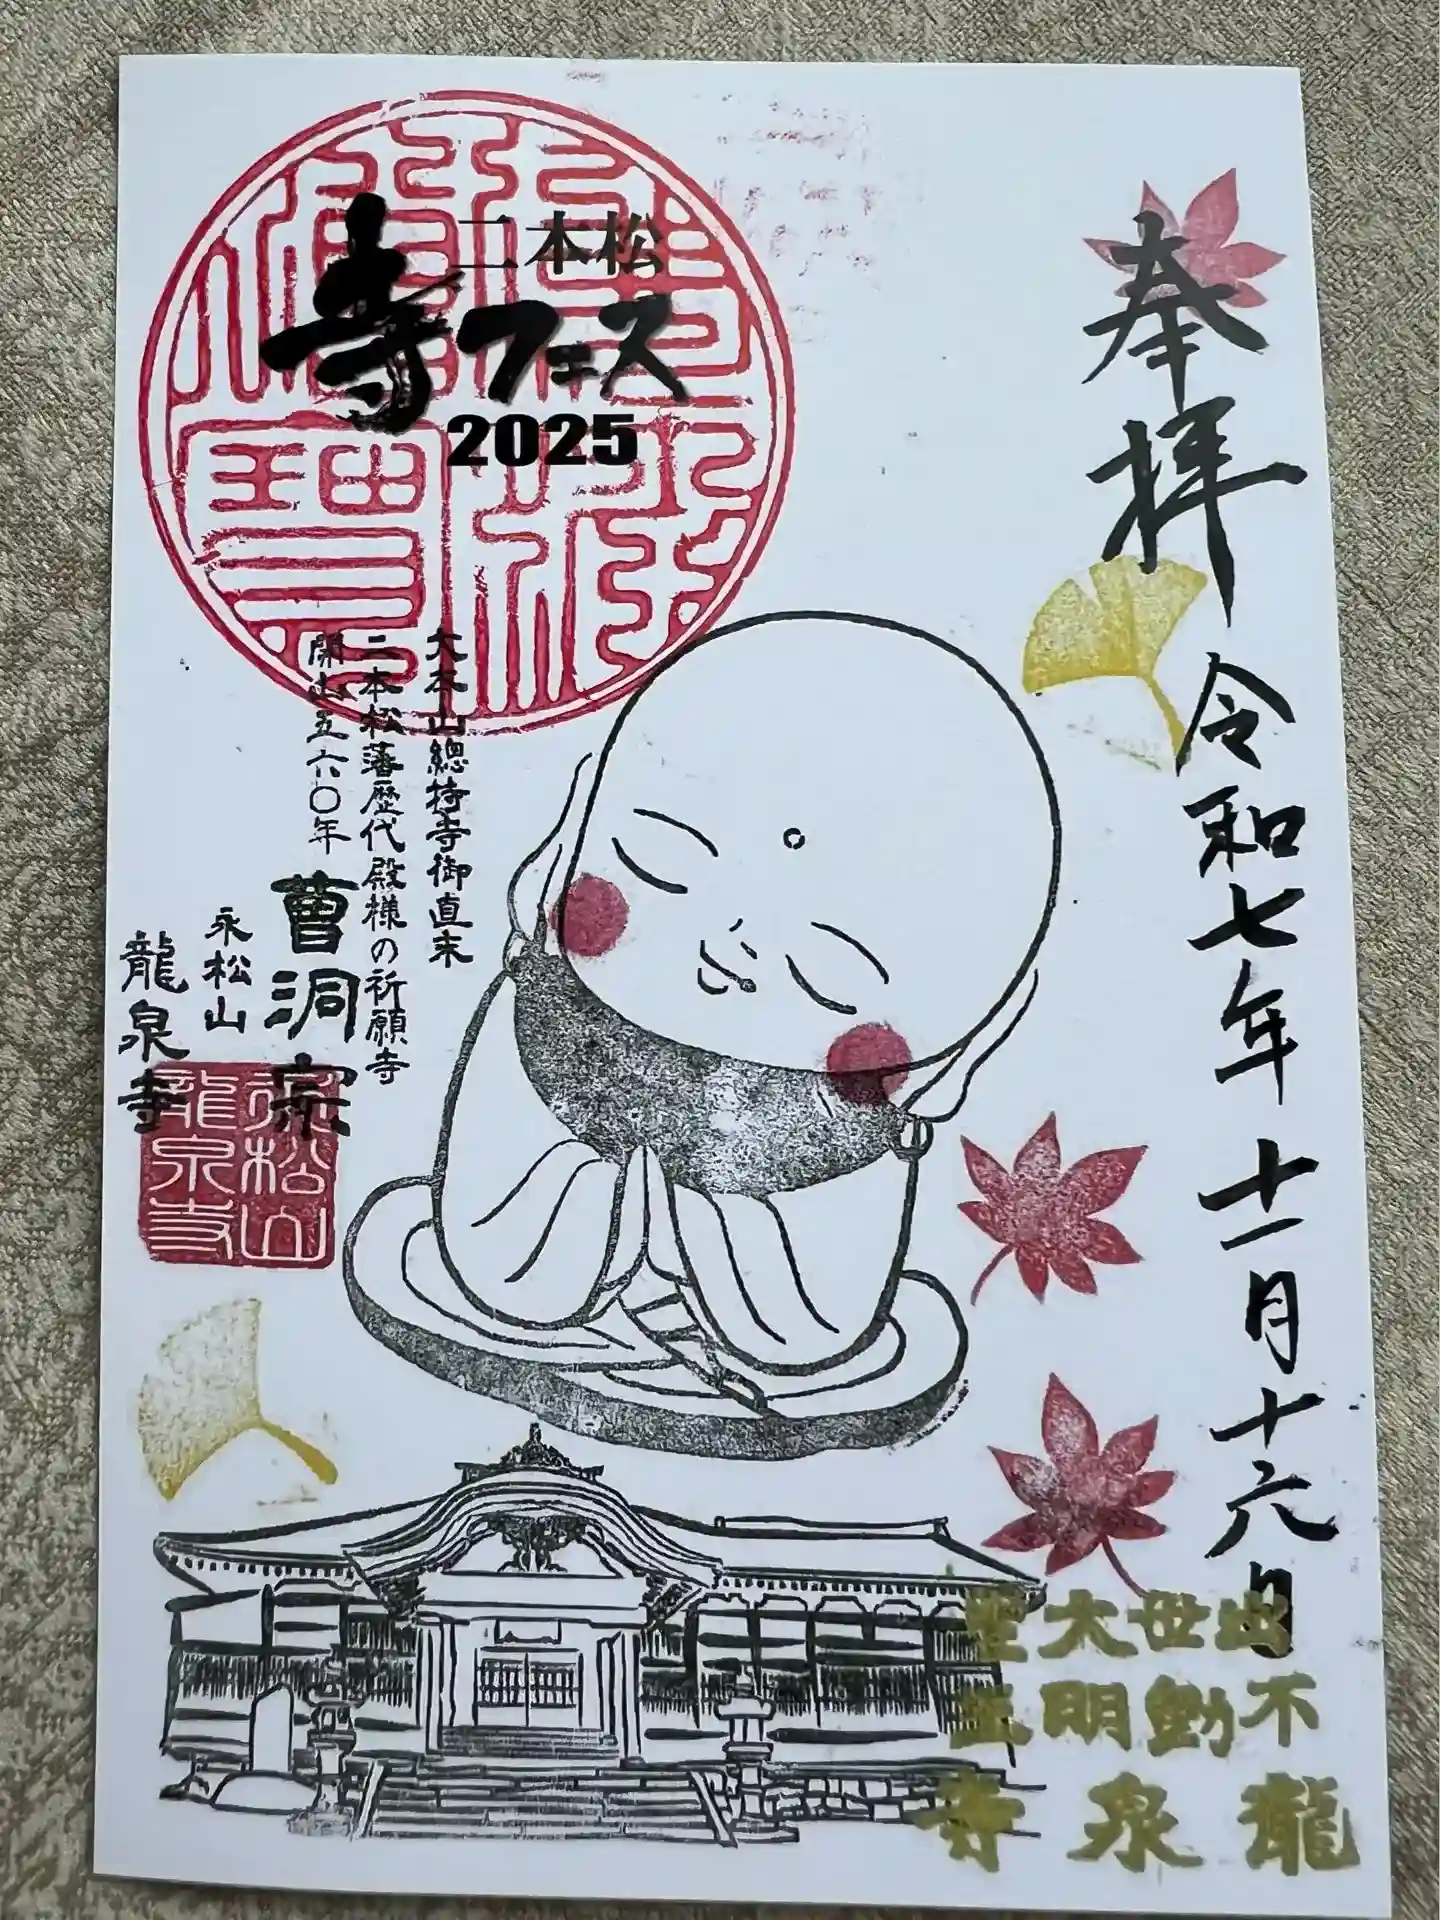 奉拝
令和七年十一月十六日
二本松
寺フェス
2025
佛法僧寶
大本山總持寺御直末
二本松藩歴代殿様の祈願寺
開山五六〇年
曹洞宗
永松山
龍泉寺
永松山
龍泉寺
出世大聖
不動明王
龍泉寺